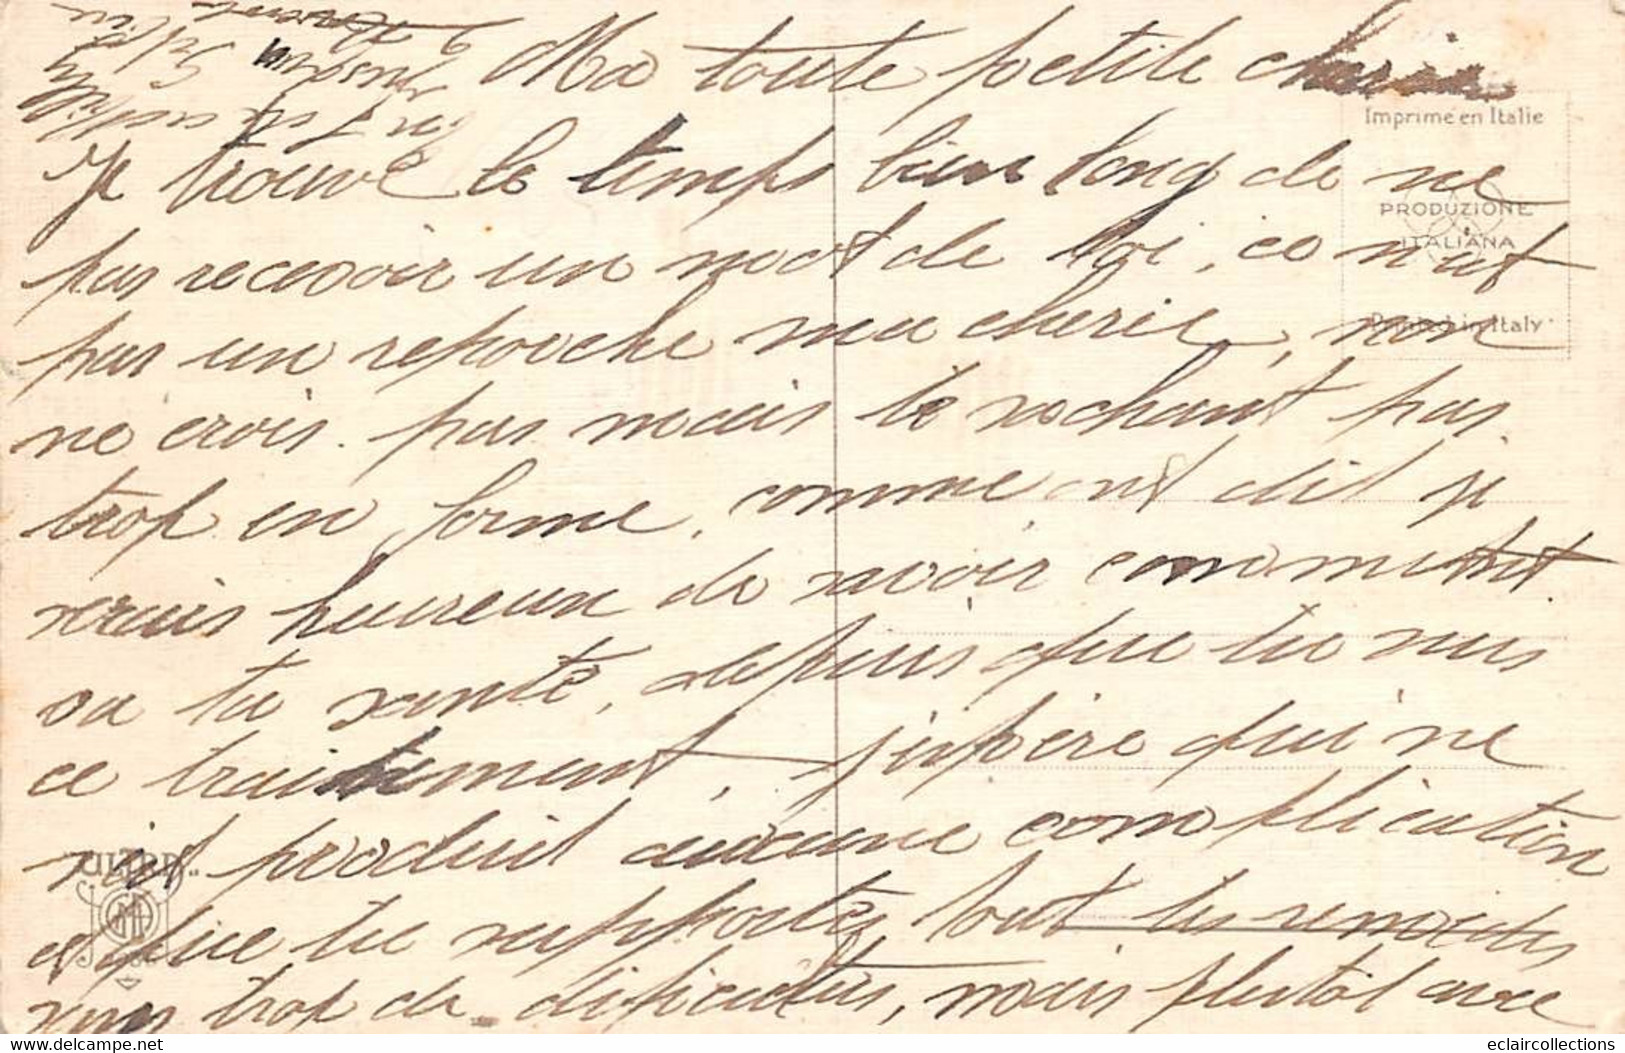 Ma toute petite cherie
Imprimé en Italie
Je trouve le temps bien long de ne
PRODUZIONE
ITALIANA
pas recevoir un mot de toi, ce n'est
Printed in Italy
pas un reproche ma cherie, non
ne crois pas mais te sachant pas
trop en forme, comme ont dit je
serais heureux de savoir comment
va ta santé, depuis que tu suis
ce traitement, j'espère qui ne
s'est produit aucune complication
"ULTRA"
et que tu supportes tout tes remèdes
sans trop de dificultés, mais plutot avec
eclaircollections
www.delcampe.net